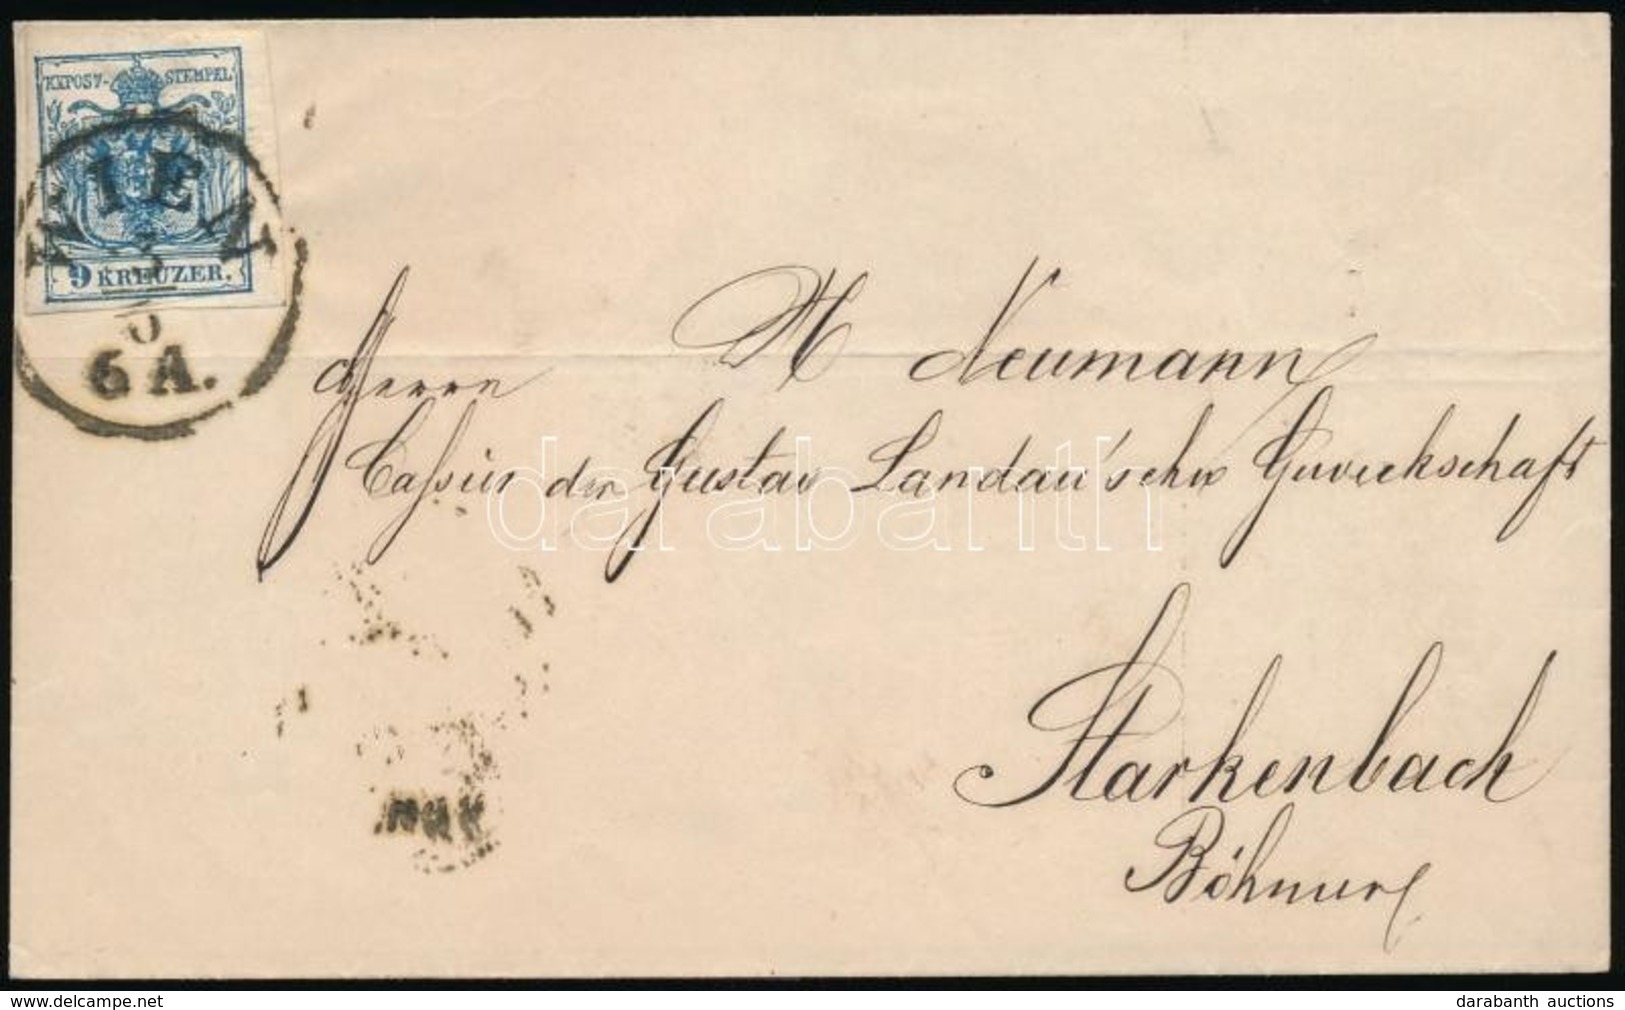 KKPOST-STEMPEL
WIEN
9 KREUZER.
6 A.
Herrn
H Neumann
Cassier der Gustav Landau'schen Gewerkschaft
Starkenbach
darabanth
www.delcampe.net
darabanth auctions